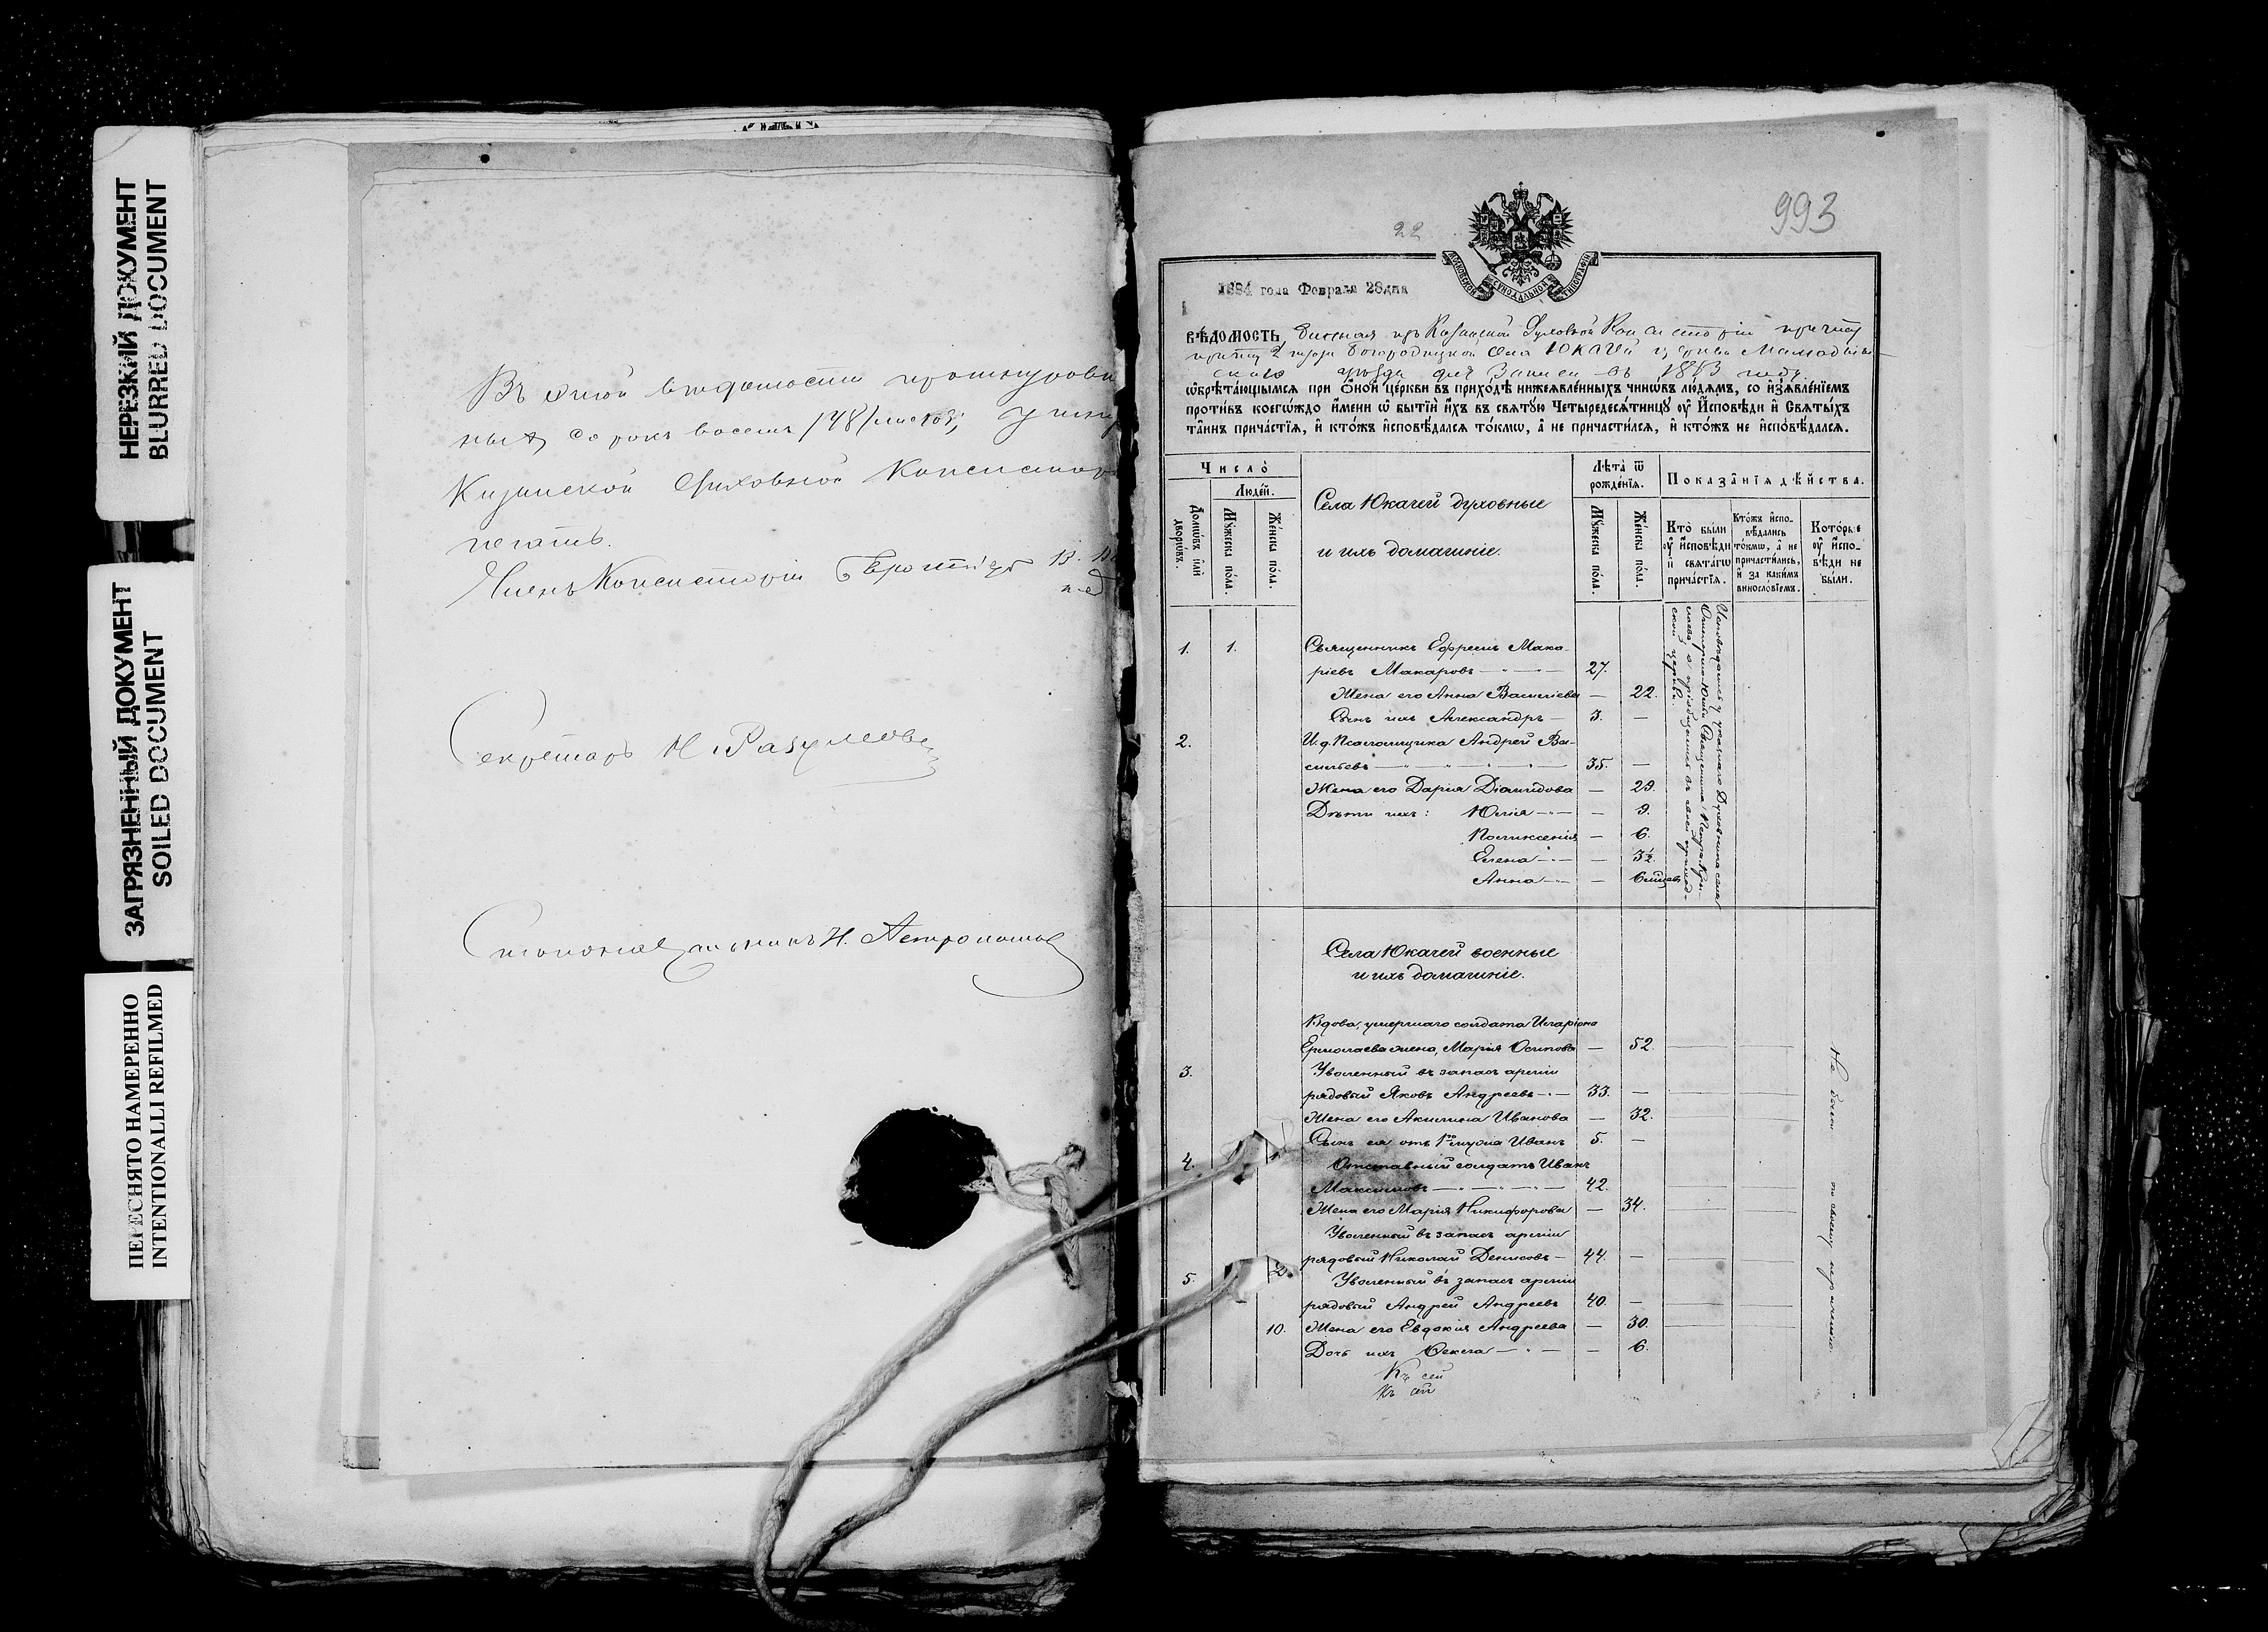 НЕРЕЗКИЙ ДОКУМЕНТ
BLURRED DOCUMENT
ЗАГРЯЗНЕННЫЙ ДОКУМЕНТ
SOILED DOCUMENT
ПЕРЕСНЯТО НАМЕРЕННО
INTENTIONALLI REFILMED
Въ сей вѣдомости прошнурован
ныхъ сорокъ восемь /48/ листовъ;
Казанской Духовной Консистор
печать.
Членъ Консисторіи Протоіерей В.
Секретарь Н. Разумовъ
Столоначальникъ Н.
993
22
1884 года Февраля 28 дня
ВѢДОМОСТЬ, данная изъ Казанской Духовной Консисторіи причту
Богородицкой села Юкачей церкви Мамадыш-
скаго уѣзда для записи въ 1883 году.
ѡбрѣтающымся при ѻной церкви въ приходѣ нижеявленныхъ чинѡвъ людямъ, со изъявленіемъ
противъ коегѡждо имени ѡ бытіи ихъ въ святую Четыредесятницу оу Исповѣди и Святыхъ
таинъ причастія, и ктожъ исповѣдался токмѡ, а не причастился, и ктожъ не исповѣдался.
Число
Людей.
Домѡвъ или дворѡвъ.
Мужеска пола.
Женска пола.
Села Юкачей духовные
и ихъ домашніе.
Лѣта ѿ рожденія.
Мужеска пола.
Женска пола.
Показанія дѣйства.
Кто были оу Исповѣди и святагѡ причастія.
Ктожъ исповѣдались токмѡ, а не причастились, и за какимъ винословіемъ.
Которые оу исповѣди не были.
1. 1. Священникъ Ефремъ Мака-
ріевъ Макаровъ — 27.
Жена его Анна Васильева — 22.
Сынъ ихъ Александръ — 3. —
2. И. д. Псаломщика Андрей Ва-
сильевъ — 35. —
Жена его Дарія Діомидова — 29.
Дѣти ихъ: Юлія — 9.
Поликсенія — 6.
Елена — 3½.
Анна — 6 мѣсяц.
Исповѣдались у указнаго Духовника села
Священника Петра
а пріобщились въ своей приход-
ской церкви.
Села Юкачей военные
и ихъ домашніе.
Вдова, умершаго солдата Иларіона
Ермолаева жена, Марія Осипова — 52.
3. Уволенный въ запасъ арміи
рядовый Яковъ Андреевъ — 33. —
Жена его Акилина Иванова — 32.
Сынъ ея отъ 1го мужа Иванъ 5. —
4. Отставный солдатъ Иванъ
Максимовъ — 42.
Жена его Марія Никифорова — 34.
Уволенный въ запасъ арміи
рядовый Николай Денисовъ — 44. —
5. Уволенный въ запасъ арміи
рядовый Андрей Андреевъ 40. —
10. Жена его Евдокія Андреева — 30.
Дочь ихъ Фекла — 6.
Не были по своему нерадѣнію.
Къ сей
Къ сей